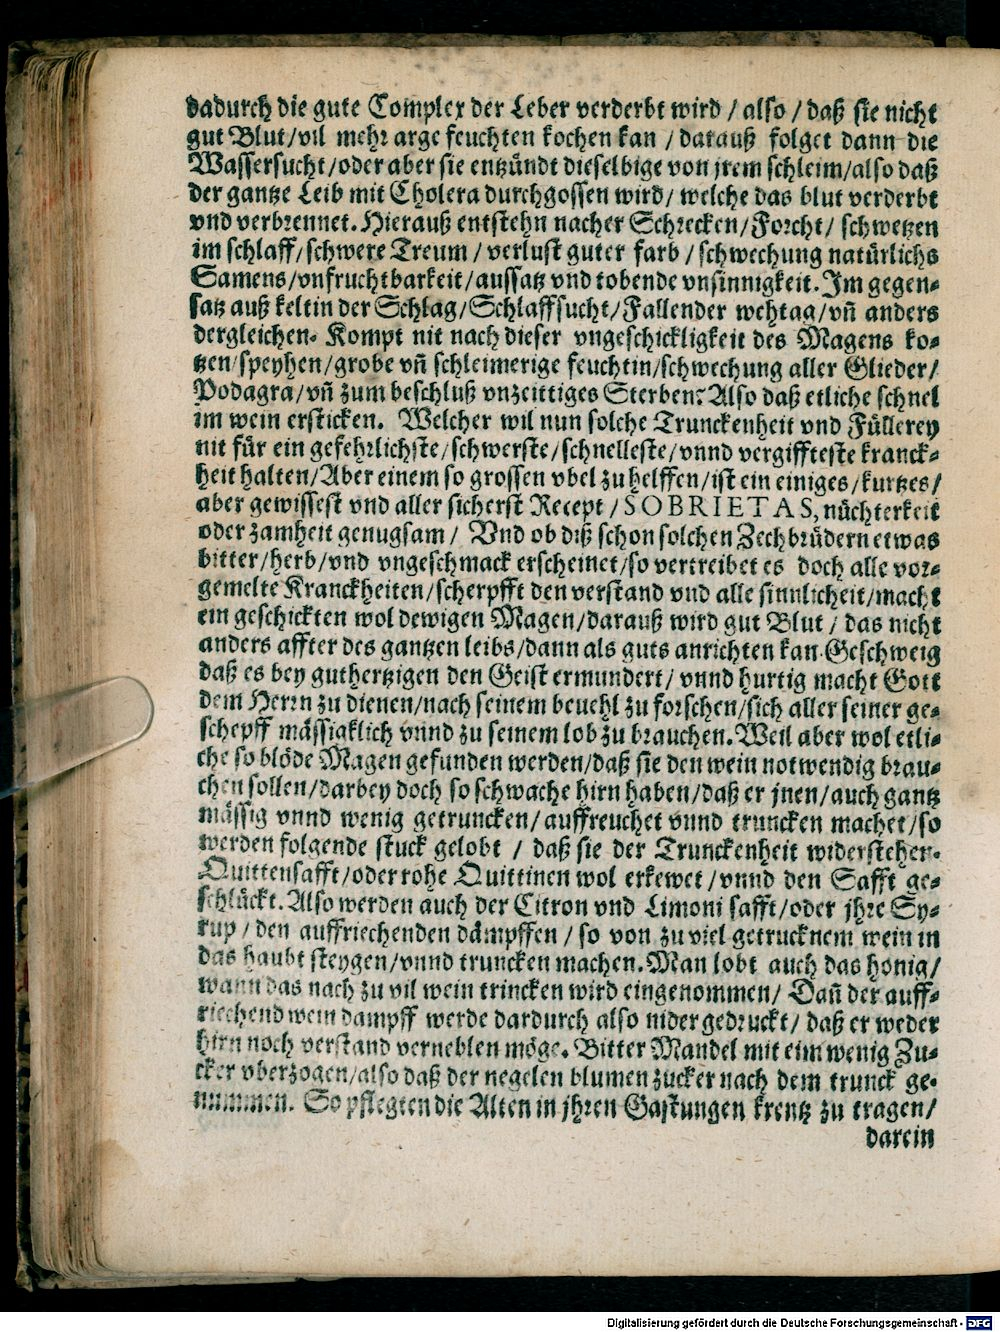 dadurch die gute Complex der Leber verderbt wird / also / daß sie nicht
gut Blut/vil mehr arge feuchten kochen kan / darauß folget dann die
Wassersucht/oder aber sie entzündt dieselbige von jrem schleim/also daß
der gantze Leib mit Cholera durchgossen wird/ welche das blut verderbt
vnd verbrennet. Hierauß entstehn nacher Schrecken/Forcht/ schwetzen
im schlaff/schwere Treum / verlust guter farb / schwechung natürlichs
Samens/vnfruchtbarkeit/aussatz vnd tobende vnsinnigkeit. Im gegen-
satz auß keltin der Schlag/Schlaffsucht/Fallender wehtag/vñ anders
dergleichen. Kompt nit nach dieser vngeschickligkeit des Magens ko-
tzen/speyhen/grobe vñ schleimerige feuchtin/schwechung aller Glieder/
Podagra/vñ zum beschluß vnzeittiges Sterben? Also daß etliche schnel
im wein ersticken. Welcher wil nun solche Trunckenheit vnd Füllerey
nit für ein gefehrlichste/schwerste/schnelleste/vnnd vergiffteste kranck-
heit halten/Aber einem so grossen vbel zu helffen/ist ein einiges/kurtzes/
aber gewissest vnd aller sicherst Recept/SOBRIETAS, nüchterkeit
oder zamheit genugsam/ Vnd ob diß schon solchen Zechbrüdern etwas
bitter/herb/vnd vngeschmack erscheinet/so vertreibet es doch alle vor-
gemelte Kranckheiten/scherpfft den verstand vnd alle sinnlicheit/macht
ein geschickten wol dewigen Magen/darauß wird gut Blut / das nicht
anders affter des gantzen leibs/dann als guts anrichten kan. Geschweig
daß es bey guthertzigen den Geist ermundert/ vnnd hurtig macht Gott
dem Herrn zu dienen/nach seinem beuehl zu forschen/sich aller seiner ge-
schepff mässiaklich vnnd zu seinem lob zu brauchen. Weil aber wol etli-
che so blöde Magen gefunden werden/daß sie den wein notwendig brau-
chen sollen/darbey doch so schwache hirn haben/daß er jnen/auch gantz
mässig vnnd wenig getruncken/auffreuchet vnnd truncken machet/so
werden folgende stuck gelobt / daß sie der Trunckenheit widerstehen.
Quittensafft/oder rohe Quittinen wol erkewet/vnnd den Safft ge-
schlückt. Also werden auch der Citron vnd Limoni safft/oder jhre Sy-
rup / den auffriechenden dämpffen / so von zu viel getrucknem wein in
das haubt steygen/vnnd truncken machen. Man lobt auch das honig/
wann das nach zu vil wein trincken wird eingenommen/ Dañ der auff-
riechend wein dampff werde dardurch also nidergedruckt/ daß er weder
hirn noch verstand verneblen möge. Bitter Mandel mit eim wenig Zu-
cker vberzogen/also daß der negelen blumen zucker nach dem trunck ge-
nummen. So pflegten die Alten in jhren Gastungen krentz zu tragen/
darein
Digitalisierung gefördert durch die Deutsche Forschungsgemeinschaft - DFG